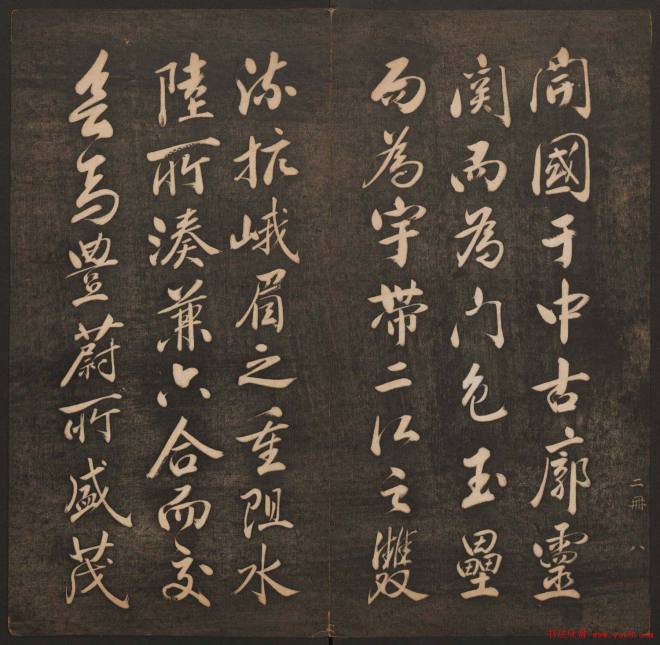 開國于中古廓靈
関而為門包玉壘
而為宇帶二江之雙
流抗峨眉之重阻水
陸所湊兼六合而交
會焉豊蔚所盛茂
二冊 八
书法欣赏 www.yac8.com